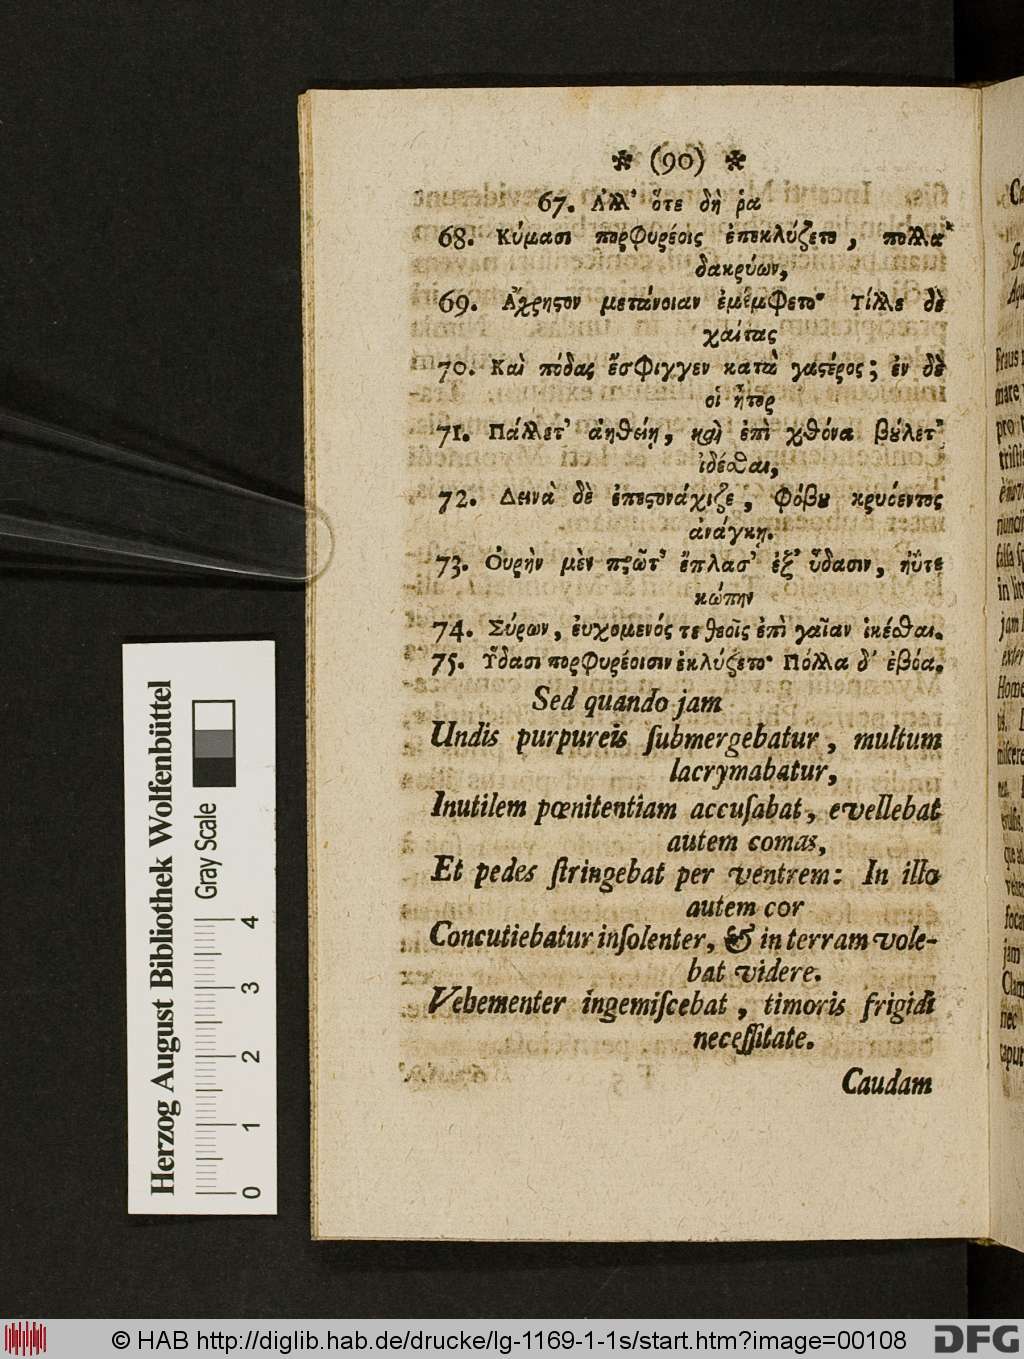 ✱ (90) ✱
67. Ἀλλ' ὅτε δὴ ῥα
68. Κύμασι πορφυρέοις ἐπεκλύζετο, πολλὰ
δακρύων,
69. Ἄχρηστον μετάνοιαν ἐμέμφετο· τίλλε δὲ
χαίτας
70. Καὶ πόδας ἔσφιγγεν κατὰ γαστέρος; ἐν δὲ
οἱ ἦτορ
71. Πάλλετ' ἀηθείῃ, καὶ ἐπὶ χθόνα βούλετ'
ἰδέσθαι,
72. Δεινὰ δὲ ἐπεστονάχιζε, φόβου κρυόεντος
ἀνάγκῃ.
73. Οὐρὴν μὲν πρῶτ' ἔπλασ' ἐξ' ὕδασιν, ἠΰτε
κώπην
74. Σύρων, ἐυχομενός τε θεοῖς ἐπὶ γαῖαν ἱκέσθαι.
75. Ὕδασι πορφυρέοισιν ἐκλύζετο· Πόλλα δ' ἐβόα.
Sed quando jam
Undis purpureis ſubmergebatur, multum
lacrymabatur,
Inutilem pœnitentiam accuſabat, evellebat
autem comas,
Et pedes ſtringebat per ventrem: In illo
autem cor
Concutiebatur inſolenter, & in terram vole-
bat videre.
Vehementer ingemiſcebat, timoris frigidi
neceſſitate.
Caudam
Herzog August Bibliothek Wolfenbüttel
Gray Scale
0 1 2 3 4
© HAB http://diglib.hab.de/drucke/lg-1169-1-1s/start.htm?image=00108
DFG